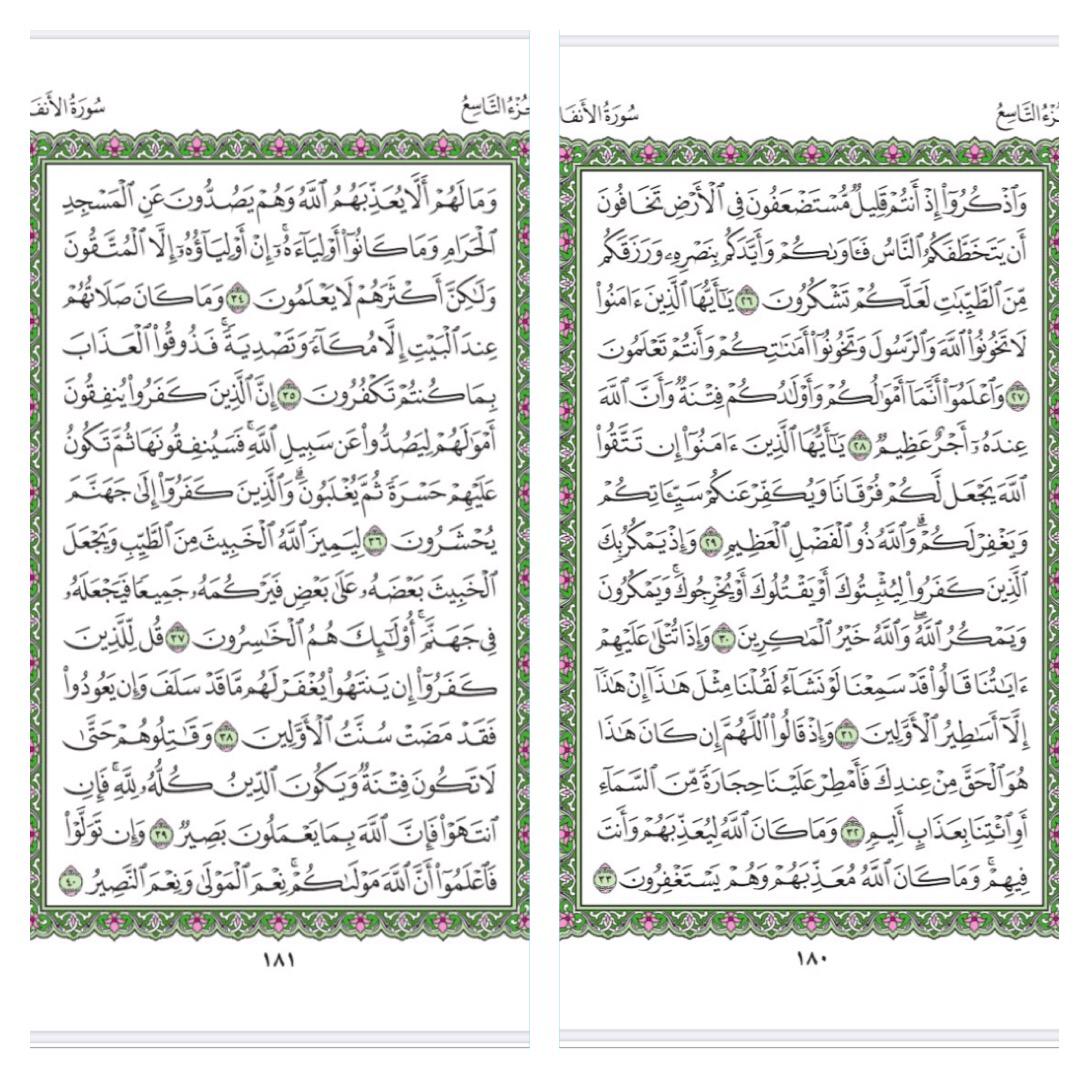 جُزْءُ التَّاسِعُ سُورَةُ الأَنفَا
وَٱذۡكُرُوٓاْ إِذۡ أَنتُمۡ قَلِيلٞ مُّسۡتَضۡعَفُونَ فِي ٱلۡأَرۡضِ تَخَافُونَ
أَن يَتَخَطَّفَكُمُ ٱلنَّاسُ فَـَٔاوَىٰكُمۡ وَأَيَّدَكُم بِنَصۡرِهِۦ وَرَزَقَكُم
مِّنَ ٱلطَّيِّبَٰتِ لَعَلَّكُمۡ تَشۡكُرُونَ ٢٦ يَٰٓأَيُّهَا ٱلَّذِينَ ءَامَنُواْ
لَا تَخُونُواْ ٱللَّهَ وَٱلرَّسُولَ وَتَخُونُوٓاْ أَمَٰنَٰتِكُمۡ وَأَنتُمۡ تَعۡلَمُونَ
٢٧ وَٱعۡلَمُوٓاْ أَنَّمَآ أَمۡوَٰلُكُمۡ وَأَوۡلَٰدُكُمۡ فِتۡنَةٞ وَأَنَّ ٱللَّهَ
عِندَهُۥٓ أَجۡرٌ عَظِيمٞ ٢٨ يَٰٓأَيُّهَا ٱلَّذِينَ ءَامَنُوٓاْ إِن تَتَّقُواْ
ٱللَّهَ يَجۡعَل لَّكُمۡ فُرۡقَانٗا وَيُكَفِّرۡ عَنكُمۡ سَيِّـَٔاتِكُمۡ
وَيَغۡفِرۡ لَكُمۡۗ وَٱللَّهُ ذُو ٱلۡفَضۡلِ ٱلۡعَظِيمِ ٢٩ وَإِذۡ يَمۡكُرُ بِكَ
ٱلَّذِينَ كَفَرُواْ لِيُثۡبِتُوكَ أَوۡ يَقۡتُلُوكَ أَوۡ يُخۡرِجُوكَۚ وَيَمۡكُرُونَ
وَيَمۡكُرُ ٱللَّهُۖ وَٱللَّهُ خَيۡرُ ٱلۡمَٰكِرِينَ ٣٠ وَإِذَا تُتۡلَىٰ عَلَيۡهِمۡ
ءَايَٰتُنَا قَالُواْ قَدۡ سَمِعۡنَا لَوۡ نَشَآءُ لَقُلۡنَا مِثۡلَ هَٰذَآ إِنۡ هَٰذَآ
إِلَّآ أَسَٰطِيرُ ٱلۡأَوَّلِينَ ٣١ وَإِذۡ قَالُواْ ٱللَّهُمَّ إِن كَانَ هَٰذَا
هُوَ ٱلۡحَقَّ مِنۡ عِندِكَ فَأَمۡطِرۡ عَلَيۡنَا حِجَارَةٗ مِّنَ ٱلسَّمَآءِ
أَوِ ٱئۡتِنَا بِعَذَابٍ أَلِيمٖ ٣٢ وَمَا كَانَ ٱللَّهُ لِيُعَذِّبَهُمۡ وَأَنتَ
فِيهِمۡۚ وَمَا كَانَ ٱللَّهُ مُعَذِّبَهُمۡ وَهُمۡ يَسۡتَغۡفِرُونَ ٣٣
١٨٠
جُزْءُ التَّاسِعُ سُورَةُ الأَنفَ
وَمَا لَهُمۡ أَلَّا يُعَذِّبَهُمُ ٱللَّهُ وَهُمۡ يَصُدُّونَ عَنِ ٱلۡمَسۡجِدِ
ٱلۡحَرَامِ وَمَا كَانُوٓاْ أَوۡلِيَآءَهُۥٓۚ إِنۡ أَوۡلِيَآؤُهُۥٓ إِلَّا ٱلۡمُتَّقُونَ
وَلَٰكِنَّ أَكۡثَرَهُمۡ لَا يَعۡلَمُونَ ٣٤ وَمَا كَانَ صَلَاتُهُمۡ
عِندَ ٱلۡبَيۡتِ إِلَّا مُكَآءٗ وَتَصۡدِيَةٗۚ فَذُوقُواْ ٱلۡعَذَابَ
بِمَا كُنتُمۡ تَكۡفُرُونَ ٣٥ إِنَّ ٱلَّذِينَ كَفَرُواْ يُنفِقُونَ
أَمۡوَٰلَهُمۡ لِيَصُدُّواْ عَن سَبِيلِ ٱللَّهِۚ فَسَيُنفِقُونَهَا ثُمَّ تَكُونُ
عَلَيۡهِمۡ حَسۡرَةٗ ثُمَّ يُغۡلَبُونَۗ وَٱلَّذِينَ كَفَرُوٓاْ إِلَىٰ جَهَنَّمَ
يُحۡشَرُونَ ٣٦ لِيَمِيزَ ٱللَّهُ ٱلۡخَبِيثَ مِنَ ٱلطَّيِّبِ وَيَجۡعَلَ
ٱلۡخَبِيثَ بَعۡضَهُۥ عَلَىٰ بَعۡضٖ فَيَرۡكُمَهُۥ جَمِيعٗا فَيَجۡعَلَهُۥ
فِي جَهَنَّمَۚ أُوْلَٰٓئِكَ هُمُ ٱلۡخَٰسِرُونَ ٣٧ قُل لِّلَّذِينَ
كَفَرُوٓاْ إِن يَنتَهُواْ يُغۡفَرۡ لَهُم مَّا قَدۡ سَلَفَ وَإِن يَعُودُواْ
فَقَدۡ مَضَتۡ سُنَّتُ ٱلۡأَوَّلِينَ ٣٨ وَقَٰتِلُوهُمۡ حَتَّىٰ
لَا تَكُونَ فِتۡنَةٞ وَيَكُونَ ٱلدِّينُ كُلُّهُۥ لِلَّهِۚ فَإِنِ
ٱنتَهَوۡاْ فَإِنَّ ٱللَّهَ بِمَا يَعۡمَلُونَ بَصِيرٞ ٣٩ وَإِن تَوَلَّوۡاْ
فَٱعۡلَمُوٓاْ أَنَّ ٱللَّهَ مَوۡلَىٰكُمۡۚ نِعۡمَ ٱلۡمَوۡلَىٰ وَنِعۡمَ ٱلنَّصِيرُ ٤٠
١٨١